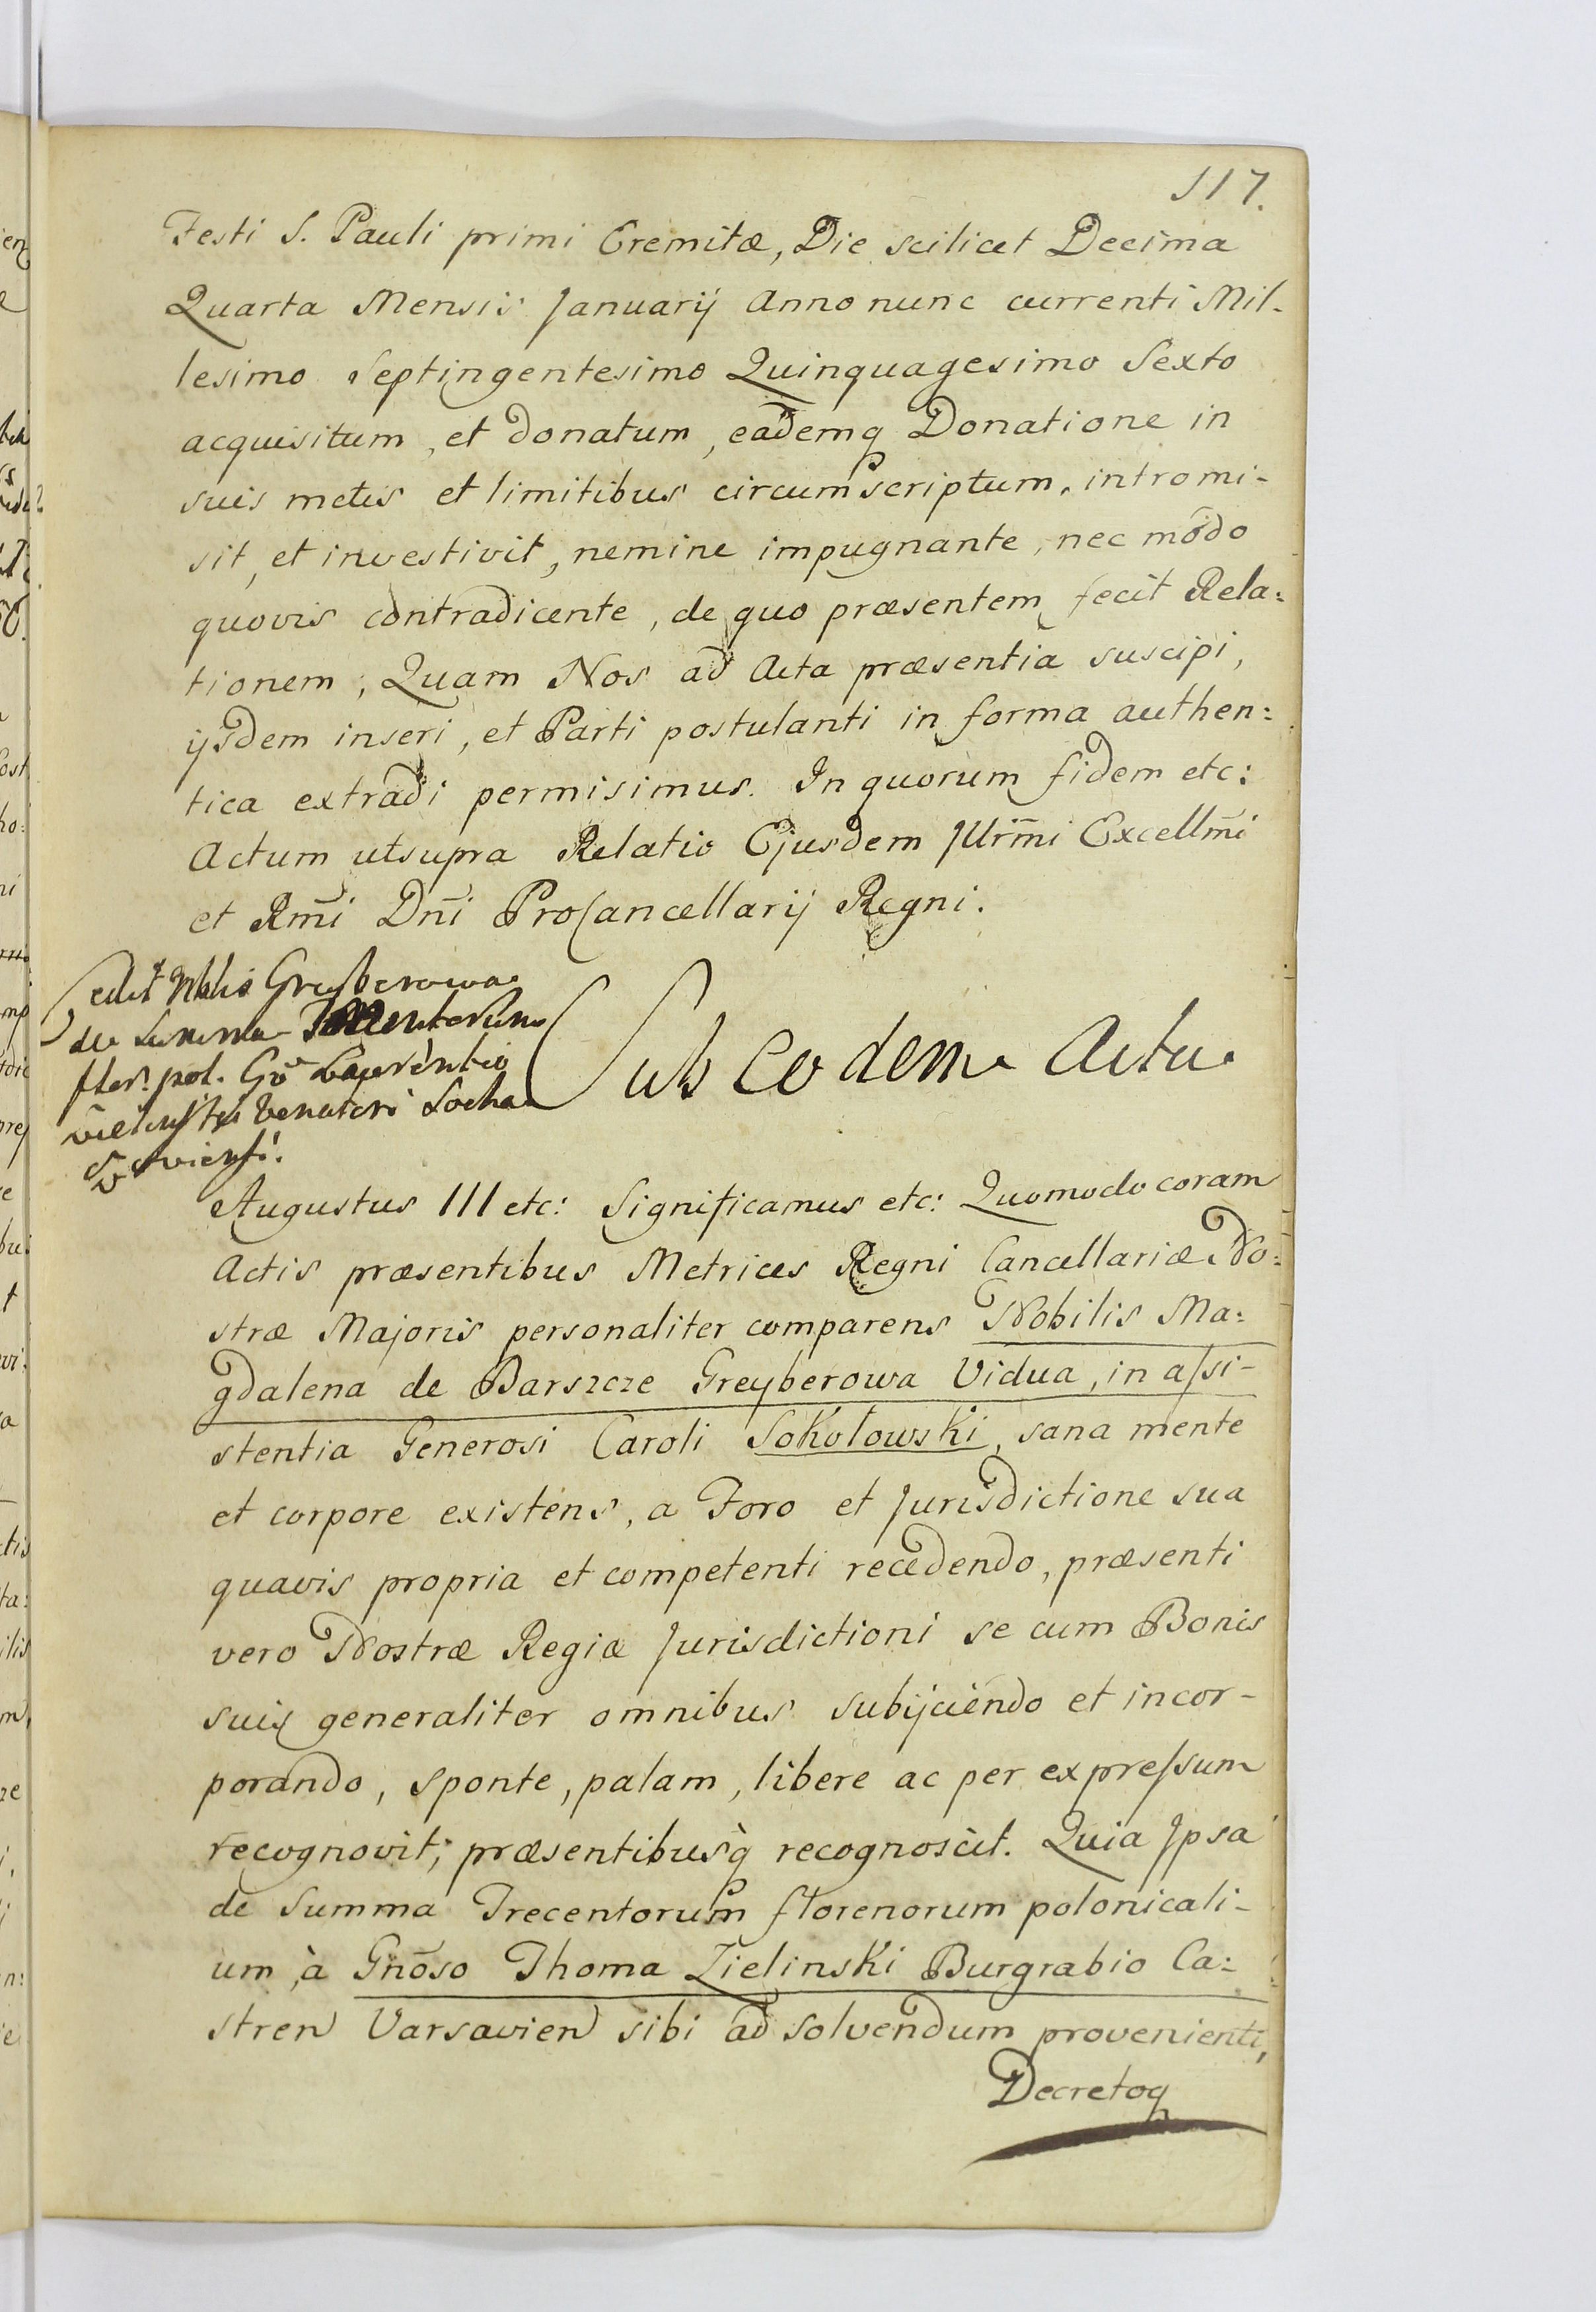 117.
Festi S. Pauli primi Eremitæ, Die scilicet Decima
Quarta Mensis Januarij Anno nunc currenti Mil-
lesimo Septingentesimo Quinquagesimo Sexto
acquisitum, et donatum, eademq Donatione in
suis metis et limitibus circumscriptum, intromi-
sit, et investivit, nemine impugnante, nec modo
quovis contradicente, de quo præsentem fecit Rela:
tionem; Quam Nos ad Acta præsentia suscipi,
ijsdem inseri, et Parti postulanti in forma authen:
tica extradi permisimus. In quorum fidem etc:
Actum utsupra Relatio Ejusdem Jllr̃mi Excellm̃i
et Rm̃i Dñi ProCancellarij Regni.
Cedit Nblis Greyberowa
de Summa
flor. pol. Gõ Laurentio
Venatori Socha
Sub eodem Actu
Augustus III etc: Significamus etc: Quomodo coram
Actis præsentibus Metrices Regni Cancellariæ No:
stræ Majoris personaliter comparens Nobilis Ma:
gdalena de Barszcze Greyberowa Vidua, in assi-
stentia Generosi Caroli Sokołowski, sana mente
et corpore existens, a Foro et Jurisdictione sua
quavis propria et competenti recedendo, præsenti
vero Nostræ Regiæ Jurisdictioni se cum Bonis
suis generaliter omnibus subijciendo et incor-
porando, sponte, palam, libere ac per expressum
recognovit, præsentibusq̀ recognoscit. Quia Jpsa
de Summa Trecentorum florenorum polonicali-
um, à Gnõso Thoma Zielinski Burgrabio Ca:
stren Varsavien sibi ad solvendum provenienti,
Decretoq